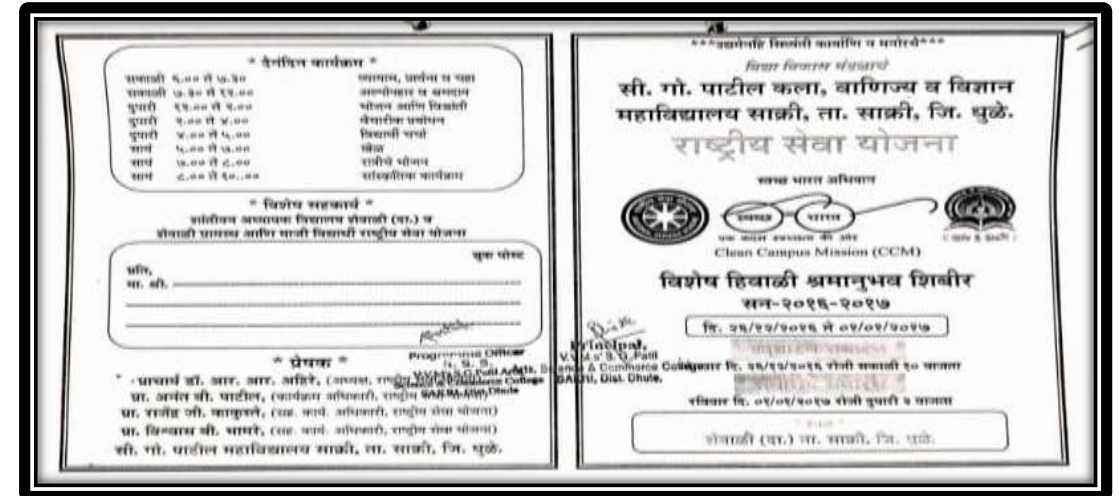 * दैनंदिन कार्यक्रम *
सकाळी ६.०० ते ७.३० व्यायाम, प्रार्थना व चहा
सकाळी ७.३० ते १२.०० अल्पोपहार व श्रमदान
दुपारी १२.०० ते २.०० भोजन आणि विश्रांती
दुपारी २.०० ते ४.०० वैचारीक प्रबोधन
दुपारी ४.०० ते ५.०० विद्यार्थी चर्चा
सायं ५.०० ते ७.०० खेळ
सायं ७.०० ते ८.०० रात्रीचे भोजन
सायं ८.०० ते १०..०० सांस्कृतिक कार्यक्रम
* विशेष सहकार्य *
अध्यापक विद्यालय शेवाळी (दा.) व
शेवाळी ग्रामस्थ आणि माजी विद्यार्थी राष्ट्रीय सेवा योजना
बुक पोस्ट
प्रति,
मा. श्री.
* प्रेषक *
प्राचार्य डॉ. आर. आर. अहिरे, (अध्यक्ष, राष्ट्रीय
प्रा. अनंत बी. पाटील, (कार्यक्रम अधिकारी, राष्ट्रीय सेवा योजना)
प्रा. राजेंद्र जी. काकुस्ते, (सह. कार्य. अधिकारी, राष्ट्रीय सेवा योजना)
प्रा. विश्वास बी. भामरे, (सह. कार्य. अधिकारी, राष्ट्रीय सेवा योजना)
सी. गो. पाटील महाविद्यालय साक्री, ता. साक्री, जि. धुळे.
Programme Officer
N. S. S.
V.V.M's S.G. Patil Arts,
Science & Commerce College
SAKRI, Dist. Dhule
Principal,
V.V.M.s' S. G. Patil
Arts, Science & Commerce College
SAKRI, Dist. Dhule.
सिध्यंती कार्याणि न मनोरथै***
विद्या विकास मंडळाचे
सी. गो. पाटील कला, वाणिज्य व विज्ञान
महाविद्यालय साक्री, ता. साक्री, जि. धुळे.
राष्ट्रीय सेवा योजना
स्वच्छ भारत अभियान
स्वच्छ भारत
एक कदम स्वच्छता की ओर
Clean Campus Mission (CCM)
विशेष हिवाळी श्रमानुभव शिबीर
सन-२०१६-२०१७
दि. २६/१२/२०१६ ते ०१/०१/२०१७
दि. २६/१२/२०१६ रोजी सकाळी १० वाजता
रविवार दि. ०१/०१/२०१७ रोजी दुपारी २ वाजता
शेवाळी (दा.) ता. साक्री, जि. धुळे.